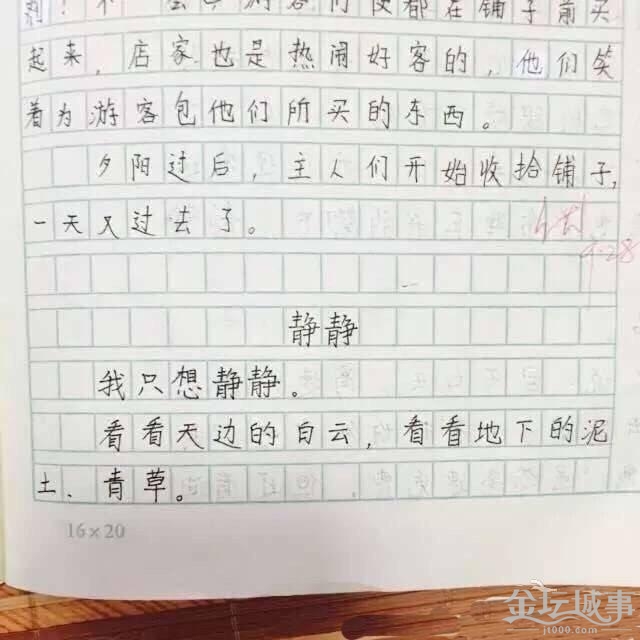 们便都在铺子前买
起来，店家也是热闹好客的，他们笑
着为游客包他们所买的东西。
夕阳过后，主人们开始收拾铺子，
一天又过去了。
4.28
静静
我只想静静。
看看天边的白云，看看地下的泥
土、青草。
16×20
金坛城事
jt000.com